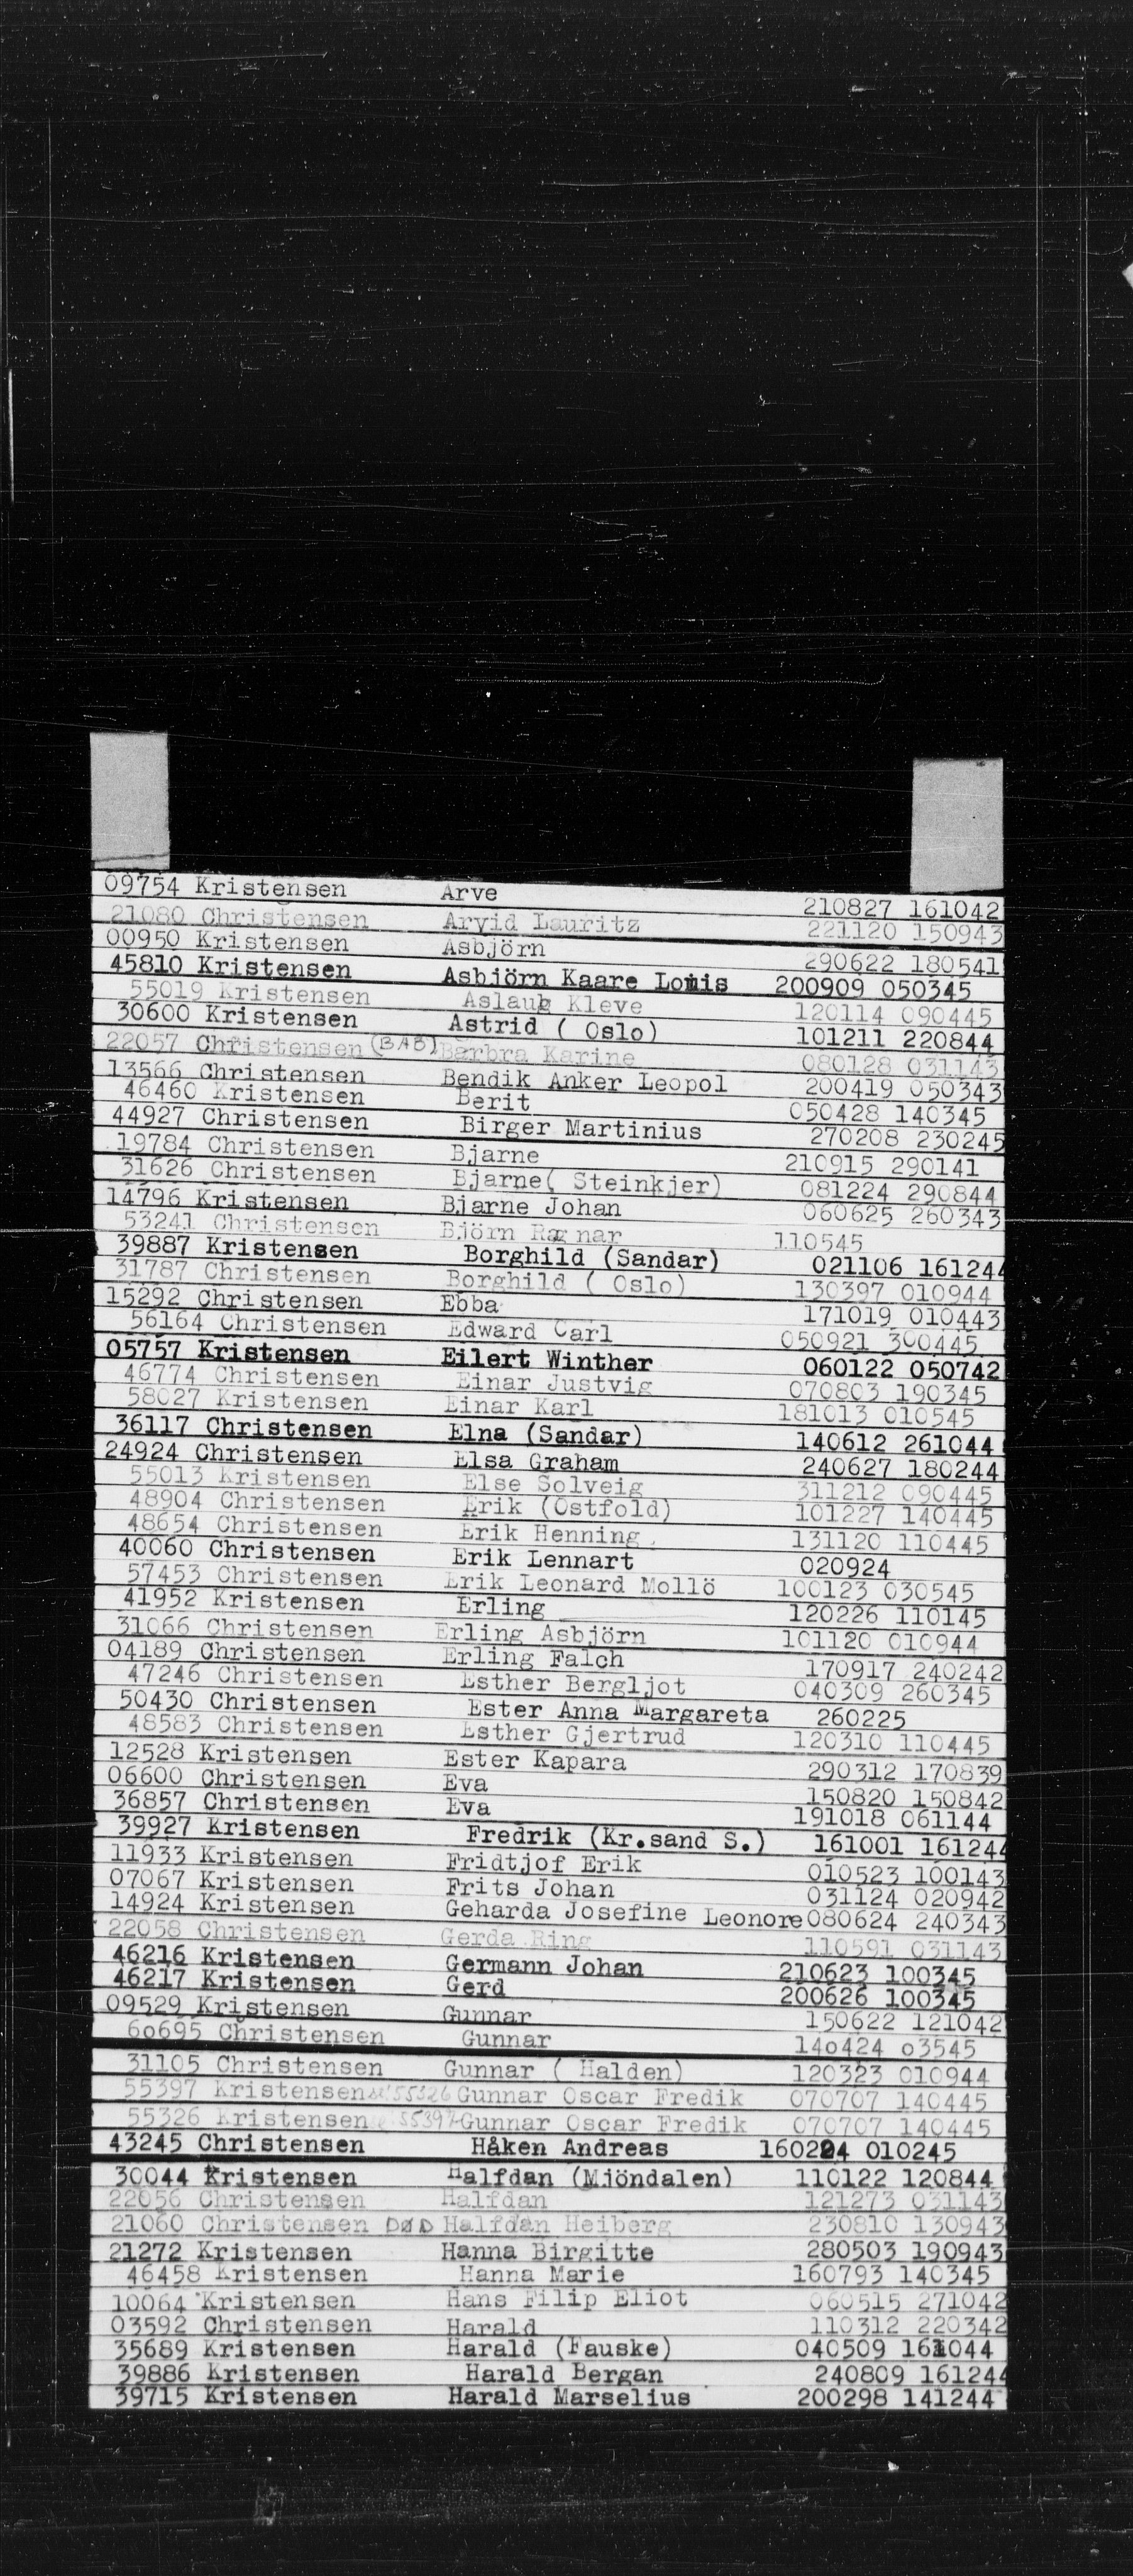 09754 Kristensen Arve 210827 161042
21080 Christensen Arvid Lauritz 221120 150943
00950 Kristensen Asbjörn 290622 180541
45810 Kristensen Asbjörn Kaare Louis 200909 050345
55019 Kristensen Aslaug Kleve 120114 090445
30600 Kristensen Astrid ( Oslo) 101211 220844
22057 Christensen (BAB) Barbra Karine 080128 031143
13566 Christensen Bendik Anker Leopol 200419 050343
46460 Kristensen Berit 050428 140345
44927 Christensen Birger Martinius 270208 230245
19784 Christensen Bjarne 210915 290141
31626 Christensen Bjarne( Steinkjer) 081224 290844
14796 Kristensen Bjarne Johan 060625 260343
53241 Christensen Björn Ragnar 110545
39887 Kristensen Borghild (Sandar) 021106 161244
31787 Christensen Borghild ( Oslo) 130397 010944
15292 Christensen Ebba 171019 010443
56164 Christensen Edward Carl 050921 300445
05757 Kristensen Eilert Winther 060122 050742
46774 Christensen Einar Justvig 070803 190345
58027 Kristensen Einar Karl 181013 010545
36117 Christensen Elna (Sandar) 140612 261044
24924 Christensen Elsa Graham 240627 180244
55013 Kristensen Else Solveig 311212 090445
48904 Christensen Erik (Ostfold) 101227 140445
48654 Christensen Erik Henning 131120 110445
40060 Christensen Erik Lennart 020924
57453 Christensen Erik Leonard Mollö 100123 030545
41952 Kristensen Erling 120226 110145
31066 Christensen Erling Asbjörn 101120 010944
04189 Christensen Erling Falch 170917 240242
47246 Christensen Esther Bergljot 040309 260345
50430 Christensen Ester Anna Margareta 260225
48583 Christensen Esther Gjertrud 120310 110445
12528 Kristensen Ester Kapara 290312 170839
06600 Christensen Eva 150820 150842
36857 Christensen Eva 191018 061144
39927 Kristensen Fredrik (Kr.sand S.) 161001 161244
11933 Kristensen Fridtjof Erik 010523 100143
07067 Kristensen Frits Johan 031124 020942
14924 Kristensen Geharda Josefine Leonore 080624 240343
22058 Christensen Gerda Ring 110591 031143
46216 Kristensen Germann Johan 210623 100345
46217 Kristensen Gerd 200626 100345
09529 Kristensen Gunnar 150622 121042
60695 Christensen Gunnar 140424 03545
31105 Christensen Gunnar ( Halden) 120323 010944
55397 Kristensen 55326 Gunnar Oscar Fredik 070707 140445
55326 Kristensen 55397 Gunnar Oscar Fredik 070707 140445
43245 Christensen Håken Andreas 160224 010245
30044 Kristensen Halfdan (Mjöndalen) 110122 120844
22056 Christensen Halfdan 121273 031143
21060 Christensen DØD Halfdan Heiberg 230810 130943
21272 Kristensen Hanna Birgitte 280503 190943
46458 Kristensen Hanna Marie 160793 140345
10064 Kristensen Hans Filip Eliot 060515 271042
03592 Christensen Harald 110312 220342
35689 Kristensen Harald (Fauske) 040509 161044
39886 Kristensen Harald Bergan 240809 161244
39715 Kristensen Harald Marselius 200298 141244